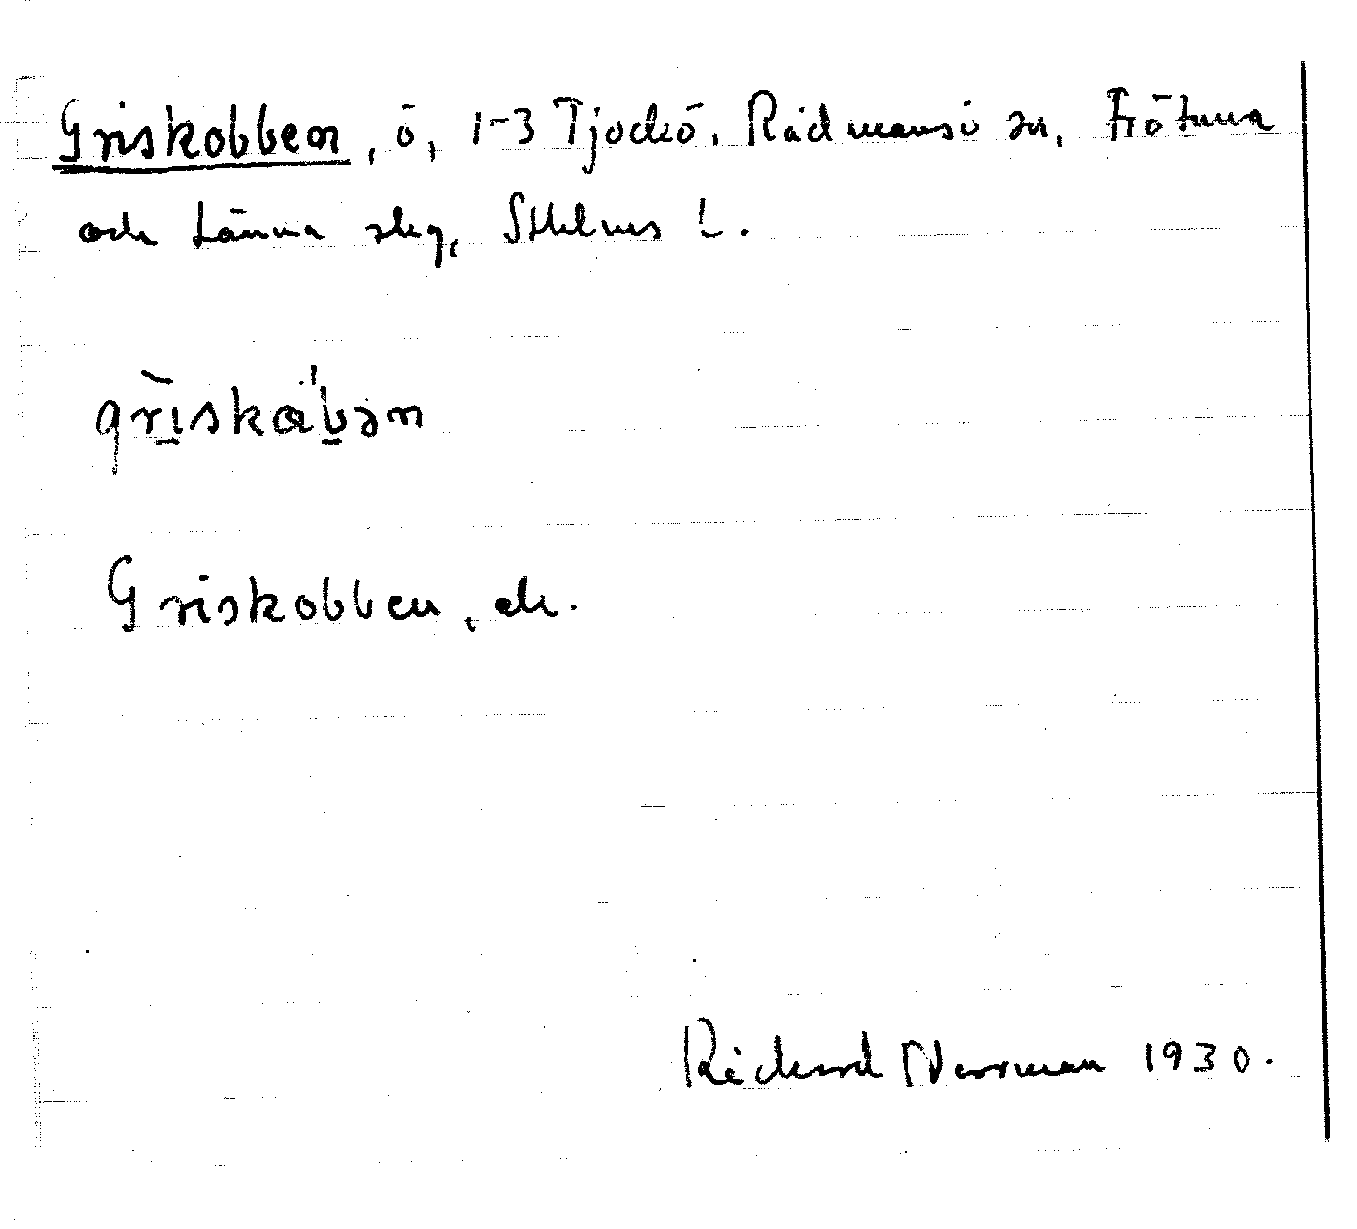 Griskobben, ö, 1-3 Tjockö, Rådmansö sn, Frötuna
och Länna skg, Sthlms L.
griskɑbən
Griskobben, ek.
Rickard Norrman 1930.